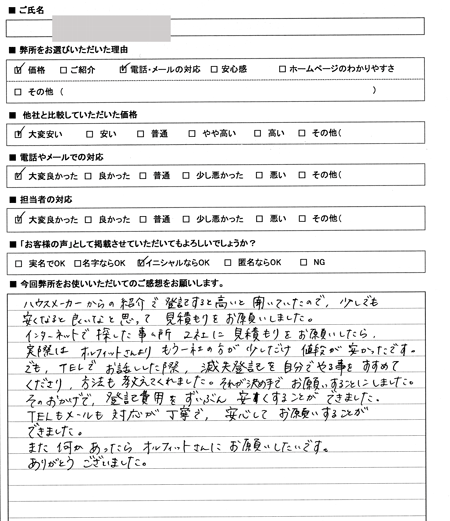 ■ ご氏名
■ 弊所をお選びいただいた理由
☑ 価格 □ ご紹介 ☑ 電話・メールの対応 □ 安心感 □ ホームページのわかりやすさ
□ その他 ( )
■ 他社と比較していただいた価格
☑ 大変安い □ 安い □ 普通 □ やや高い □ 高い □ その他(
■ 電話やメールでの対応
☑ 大変良かった □ 良かった □ 普通 □ 少し悪かった □ 悪い □ その他(
■ 担当者の対応
☑ 大変良かった □ 良かった □ 普通 □ 少し悪かった □ 悪い □ その他(
■ 「お客様の声」として掲載させていただいてもよろしいでしょうか?
□ 実名でOK □ 名字ならOK ☑ イニシャルならOK □ 匿名ならOK □ NG
■ 今回弊所をお使いいただいてのご感想をお願いします。
ハウスメーカーからの紹介で登記すると高いと聞いていたので、少しでも
安くなると良いなと思って見積もりをお願いしました。
インターネットで探した事ム所 2社に見積もりをお願いしたら、
実際は オルフィットさんより もう一社の方が少しだけ値段が安かったです。
でも、TELでお話しした際、滅失登記を自分でやる事をすすめて
くださり、方法も教えてくれました。それが決め手でお願いすることにしました。
そのおかげで、登記費用をずいぶん安くすることができました。
TELもメールも対応が丁寧で、安心してお願いすることが
できました。
また何かあったらオルフィットさんにお願いしたいです。
ありがとうございました。